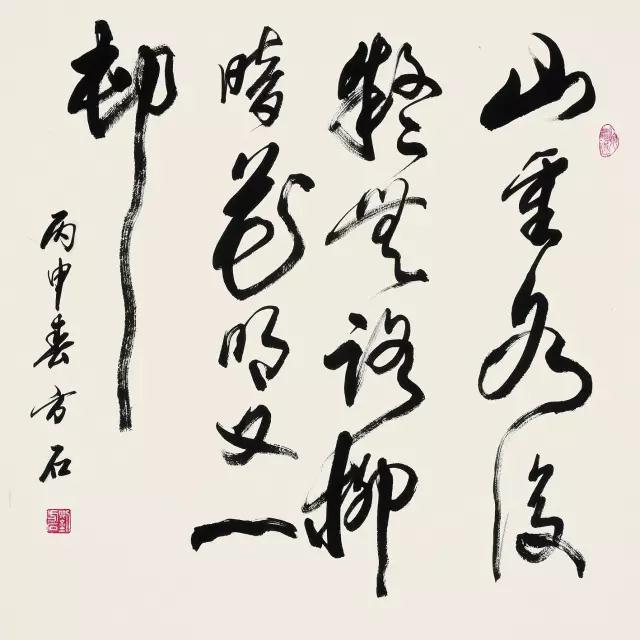 山重水復
疑無路柳
暗花明又一
邨
丙申春方石